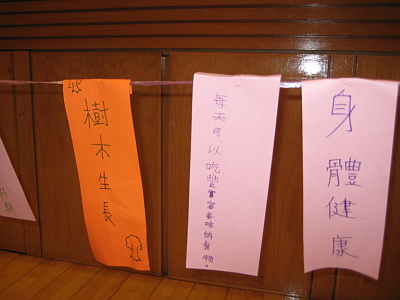 身體健康
每天可以吃豐富美味的食物。
樹木生長